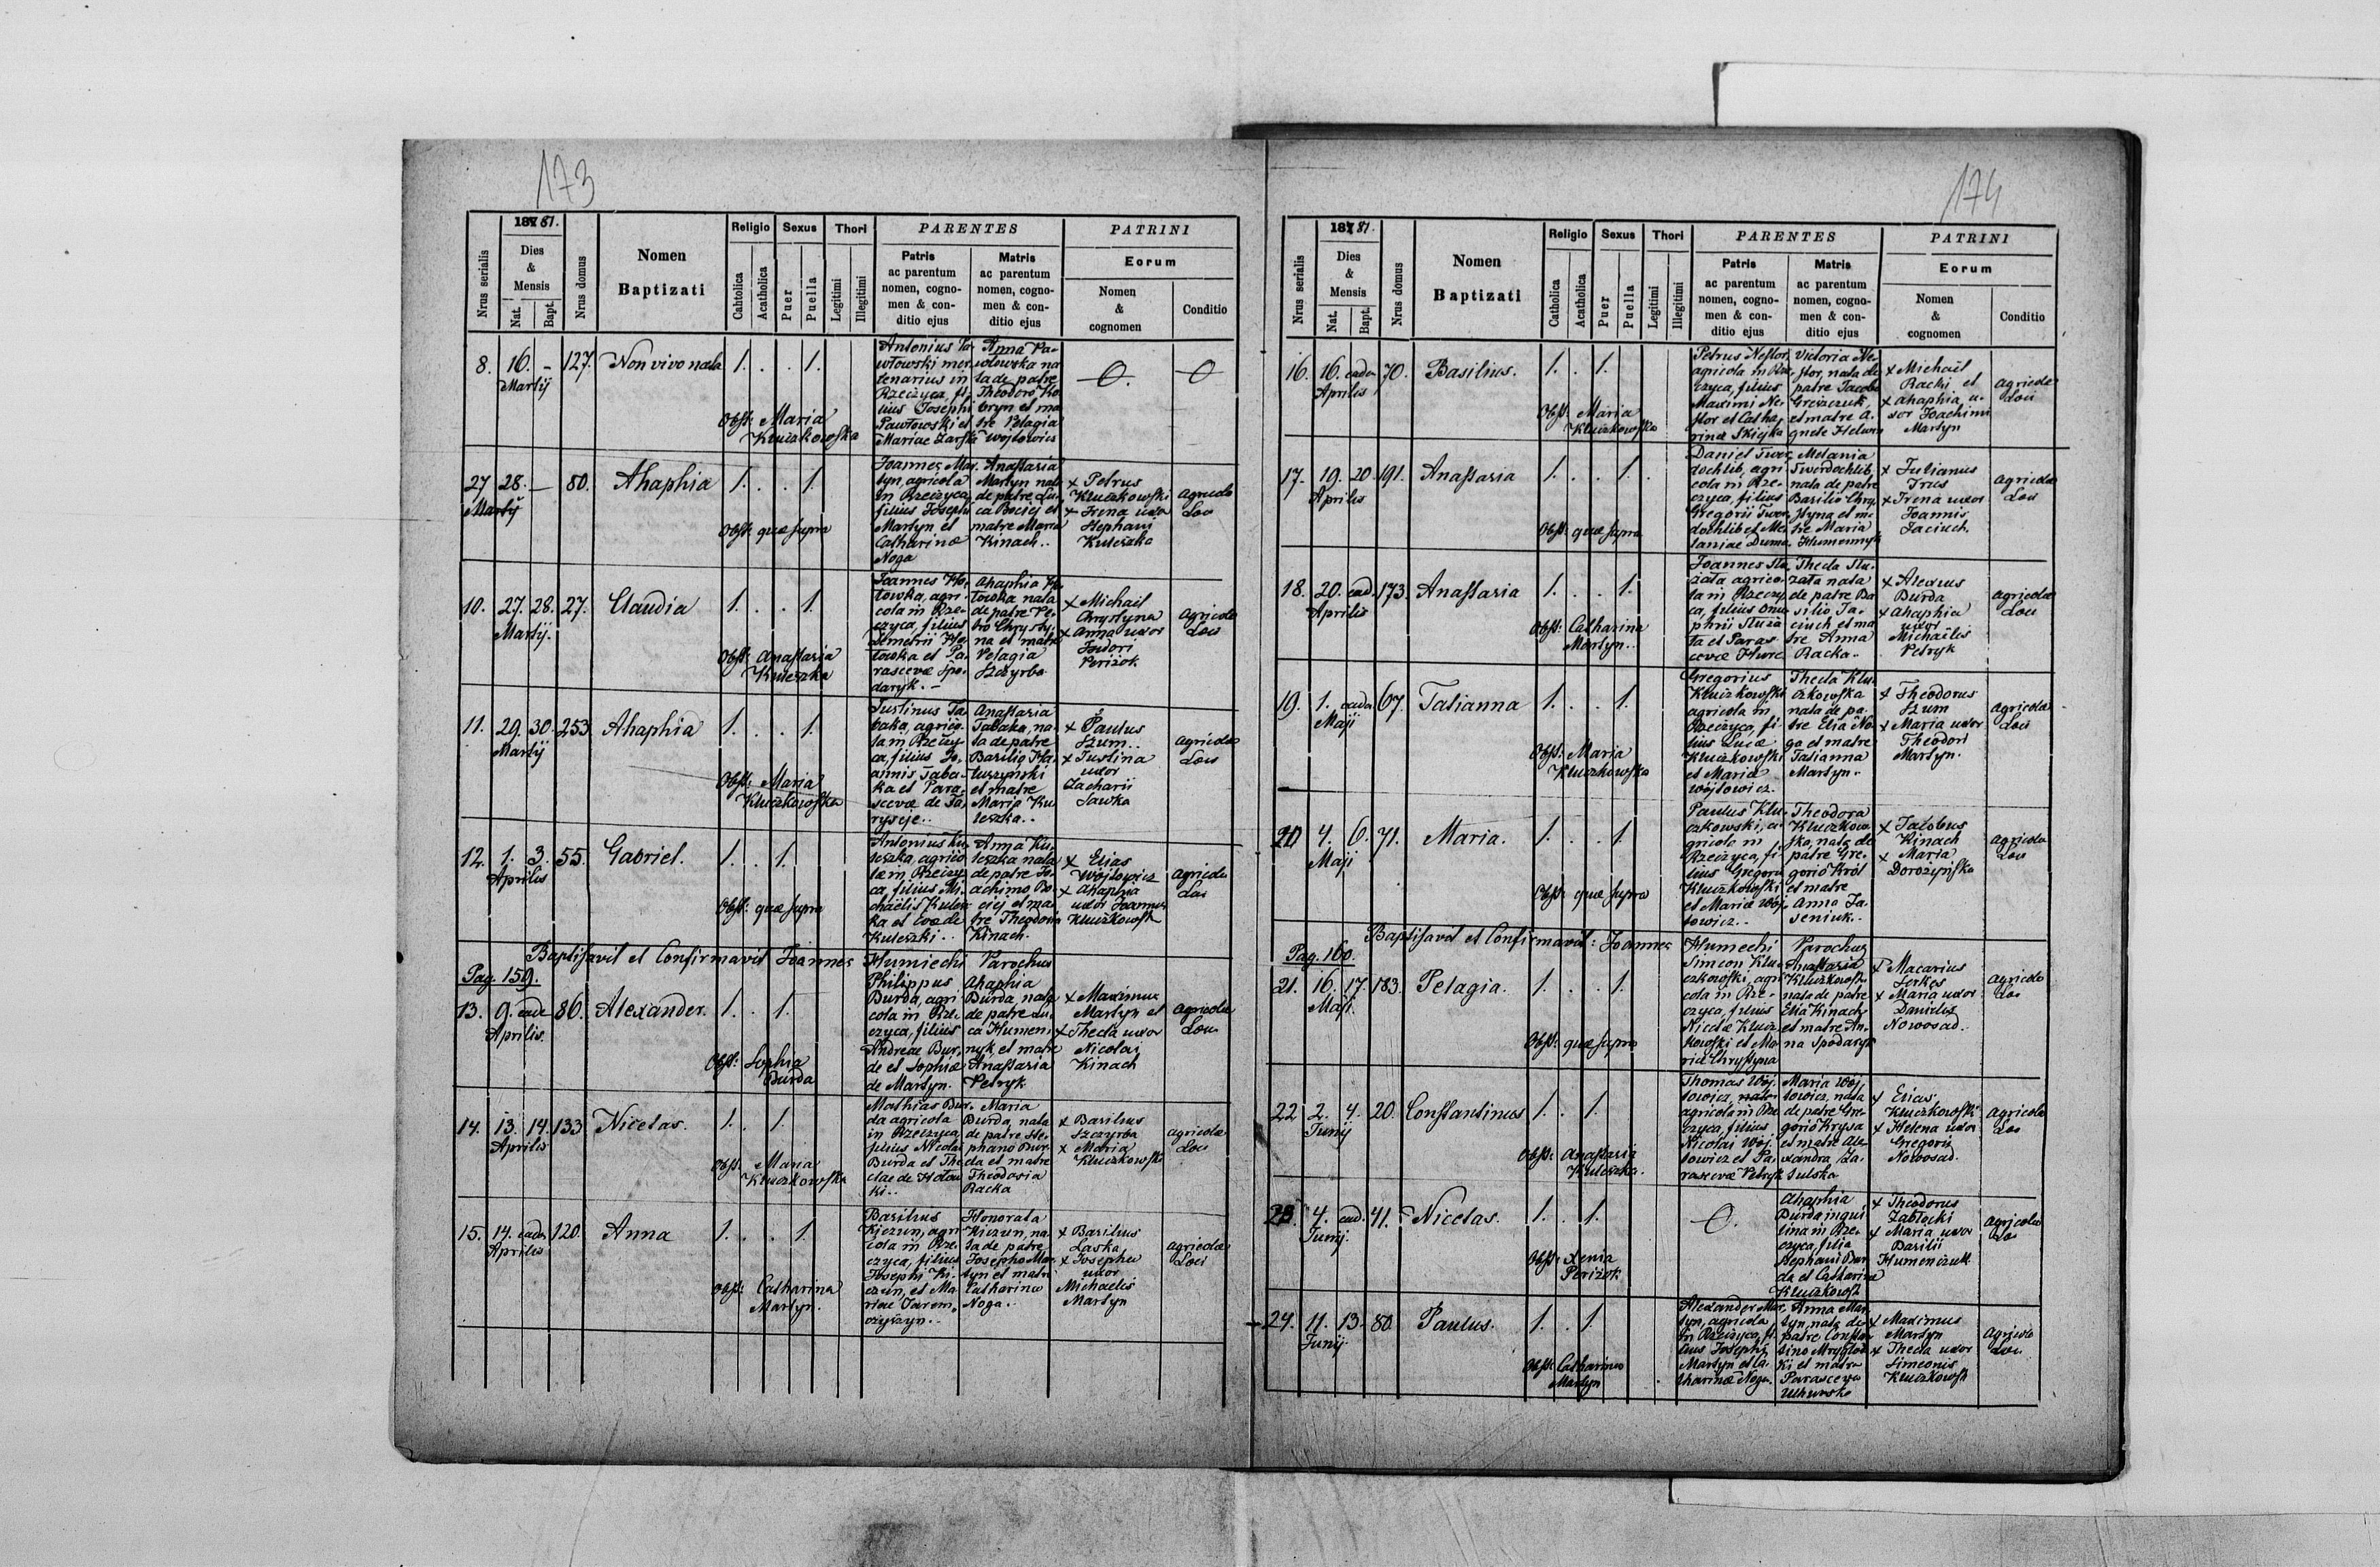 173
1881.
Nrus serialis
Dies & Mensis
Nat.
Bapt.
Nrus domus
Nomen Baptizati
Religio
Cahtolica
Acatholica
Sexus
Puer
Puella
Thori
Legitimi
Illegitimi
PARENTES
Patris
ac parentum
nomen, cogno-
men & con-
ditio ejus
Matris
ac parentum
nomen, cogno-
men & con-
ditio ejus
PATRINI
Eorum
Nomen
&
cognomen
Conditio
8. 16. - 127. Non vivo nata 1. . . 1.
Martij
Obst: Maria
Kluczkowska
Antonius Pa-
włowski mer-
cenarius in
Rzeczyca, fi-
lius Josephi
Pawłowski et
Mariae Żarska
Anna Pa-
włowska na-
ta de patre
Theodoro Ko-
et ma-
tre Pelagia
Wojtowicz
27 28. — 80. Ahaphia 1. . . 1.
Martij
Obst: quae supra
Joannes Mar-
tyn, agricola
in Rzeczyca,
filius Josephi
Martyn et
Catharinae
Noga
Anastasia
Martyn nata
de patre Lu-
ca Bociej et
matre Maria
Kinach..
+ Petrus
Kluczkowski
+ Irena uxor
Stephani
Kuleszka
agricolae
Loci
10. 27. 28. 27. Claudia 1. . . 1.
Martij.
Obst: Anastasia
Kuleszka
Joannes Ho-
towka, agri-
cola in Rze-
czyca, filius
Demetrii Ho-
towka et Pa-
rascevae Spo-
daryk. -
Ahaphia Ho-
towka nata
de patre Pe-
tro Chrysty-
na et matre
Pelagia
Szczyrba
+ Michail
Chrystyna
+ Anna uxor
Perizok
agricolae
Loci
11. 29. 30. 253 Ahaphia 1. . . 1.
Martij
Obst: Maria
Kluczkowska
Justinus Ta-
baka, agrico-
la in Rzeczy-
ca, filius Jo-
annis Taba-
ka et Para-
scevae de Ta-
ryseje..
Anastasia
Tabaka, na-
ta de patre
Basilio Ha-
luszynski
et matre
Maria Ku-
leszka..
+ Paulus
Szum..
+ Justina
uxor
Zacharii
Sawka
agricolae
Loci
12. 1. 3. 55. Gabriel. 1. . 1.
Aprilis
Obst: quae supra
Antonius Ku-
leszka, agrico-
la in Rzeczy-
ca, filius Mi-
chaëlis Kulesz-
ka et Evae de
Kuleszki..
Anna Ku-
leszka nata
de patre Jo-
achimo Bo-
ciej et ma-
tre Theodora
Kinach.
+ Elias
Wojtowicz
+ Ahaphia
uxor Joannis
Kluczkowski
agricolae
Loci
Baptisavit et Confirmavit Joannes Humiecki Parochus
Pag. 159.
13. 9. eade 86. Alexander. 1. . 1.
Aprilis.
Obst: Sophia
Burda
Philippus
Burda, agri-
cola in Rze-
czyca, filius
Andreae Bur-
de et Sophiae
de Martyn.
Ahaphia
Burda, nata
de patre Lu-
ca Humen-
nyk, et matre
Anastasia
Petryk
+ Maximus
Martyn et
+ Thecla uxor
Nicolai
Kinach
agricolae
Loci
14. 13. 14. 133 Nicetas. 1. . 1.
Aprilis
Obst. Maria
Kluczkowska
Mathias Bur-
da agricola
in Rzeczyca,
filius Nicolai
Burda et The-
clae de Hołow-
ki..
Maria
Burda, nata
de patre Ste-
phano Bur-
da et matre
Theodosia
Racka
+ Basilius
Szczyrba
+ Maria
Kluczkowski
agricolae
Loci
15. 14. eade 120. Anna 1. . . 1.
Aprilis
Obst: Catharina
Martyn.
Basilius
Kiczun, agri-
cola in Rze-
czyca, filius
Josephi Ki-
czun, et Ma-
riae Jarem-
czyszyn..
Honorata
Kiczun, na-
ta de patre
Josepho Mar-
tyn et matre
Catharina
Noga..
+ Basilius
Laska
+ Josepha
uxor
Michaelis
Martyn
agricolae
Loci
174
1881.
Nrus serialis
Dies & Mensis
Nat.
Bapt.
Nrus domus
Nomen Baptizati
Religio
Catholica
Acatholica
Sexus
Puer
Puella
Thori
Legitimi
Illegitimi
PARENTES
Patris
ac parentum
nomen, cogno-
men & con-
ditio ejus
Matris
ac parentum
nomen, cogno-
men & con-
ditio ejus
PATRINI
Eorum
Nomen
&
cognomen
Conditio
16. 16. eadem 70. Basilius. 1. . 1.
Aprilis
Obst: Maria
Kluczkowska
Petrus Nestor,
agricola in Rze-
czyca, filius
Maximi Ne-
stor et Catha-
rinae Skicka
Victoria Ne-
stor, nata de
patre Jacobo
et matre A-
gnete
+ Michaël
Racki et
+ Ahaphia, u-
xor Joachimi
Martyn
agricolae
Loci
17. 19. 20 191. Anastasia 1. . . 1.
Aprilis
Obst: quae supra
Daniel Twer-
dochlib, agri-
cola in Rze-
czyca, filius
Gregorii Twer-
dochlib et Me-
laniae Duma.
Melania
Twerdochlib,
nata de patre
Basilio Chry-
styna et ma-
tre Maria
Humennyk
+ Julianus
Irus
+ Irena uxor
Joannis
Jaciuch.
agricolae
Loci
18. 20. ead. 173. Anastasia 1. . . 1.
Aprilis
Obst: Catharina
Martyn..
Joannes Stu-
zata agrico-
la in Rzeczy-
ca, filius Onu-
phrii Stuza-
ta et Paras-
cevae
Thecla Stu-
zata nata
de patre Ba-
silio Ja-
ciuch et ma-
tre Anna
Racka..
+ Alexius
Burda
+ Ahaphia
uxor
Michaëlis
Petryk
agricolae
Loci
19. 1. eade 67. Tatianna 1. . . 1.
Maji
Obst: Maria
Kluczkowska
Gregorius
Kluczkowski
agricola in
Rzeczyca, fi-
lius Lucae
Kluczkowski
et Maria
Wojtowicz.
Thecla Klu-
czkowska
nata de pa-
tre Elia No-
ga et matre
Tatianna
Martyn.
+ Theodorus
Szum
+ Maria uxor
Theodori
Martyn.
agricolae
Loci
20 4. 6. 71. Maria. 1. . . 1.
Maji
Obst: quae supra
Paulus Klu-
czkowski, a-
gricola in
Rzeczyca, fi-
lius Gregorii
Kluczkowski
et Mariae Woj-
towicz..
Theodora
Kluczkow-
ska, nata de
patre Gre-
gorio Krol
et matre
Anna Ja-
seniuk..
+ Jacobus
Kinach
+ Maria
Dorozyńska
agricolae
Loci
Baptisavit et Confirmavit: Joannes Humecki Parochus
Pag. 160.
21. 16. 17. 183. Pelagia. 1. . . 1.
Maji.
Obst: quae supra
Simeon Klu-
czkowski, agri-
cola in Rze-
czyca, filius
Nicolae Klucz-
kowski et Ma-
riae Chrystyna
Anastasia
Kluczkowska
nata de patre
Elia Kinach
et matre An-
na Spodaryk
+ Macarius
Serkes
+ Maria uxor
Danielis
Nowosad.
agricolae
Loci
22 2. 4. 20. Constantinus 1. . 1.
Junij
Obst: Anastasia
Kuleszka.
Thomas Woj-
towicz,
agricola in Rze-
czyca, filius
Nicolai Woj-
towicz et Pa-
rascevae Petryk
Maria Woj-
towicz, nata
de patre Gre-
gorio Krysa
et matre Ale-
xandra Za-
lulska
+ Elias
Kluczkowski
+ Helena uxor
Gregorii
Nowosad.
agricolae
Loci
23. 4. ead. 41. Nicetas. 1. . 1.
Junij.
Obst: Xenia
Perizok
Ahaphia
Burda inqui-
lina in Rze-
czyca, filia
Stephani Bur-
da et Catharina
Kluczkowski
+ Theodorus
Zabłocki
+ Maria uxor
Basilii
Humeńczuk
agricolae
Loci
24. 11. 13. 80. Paulus. 1. . 1.
Junij
Obst: Catharina
Martyn
Alexander Mar-
tyn, agricola
in Rzeczyca, fi-
lius Josephi
Martyn et Ca-
tharinae Noga.
Anna Mar-
tyn, nata de
patre Constan-
tino Mryglod-
ki et matre
Parasceva
+ Maximus
Martyn
+ Thecla uxor
Simeonis
Kluczkowski
agricolae
Loci